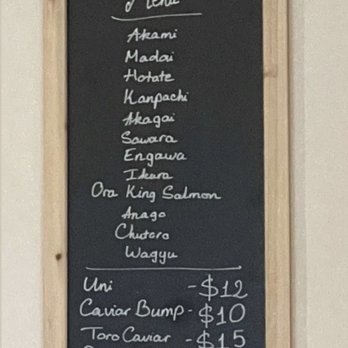 Menu
Akami
Madai
Hotate
Kanpachi
Akagai
Sawara
Engawa
Ikura
Ora King Salmon
Anago
Chutoro
Wagyu
Uni - $12
Caviar Bump - $10
Toro Caviar - $15